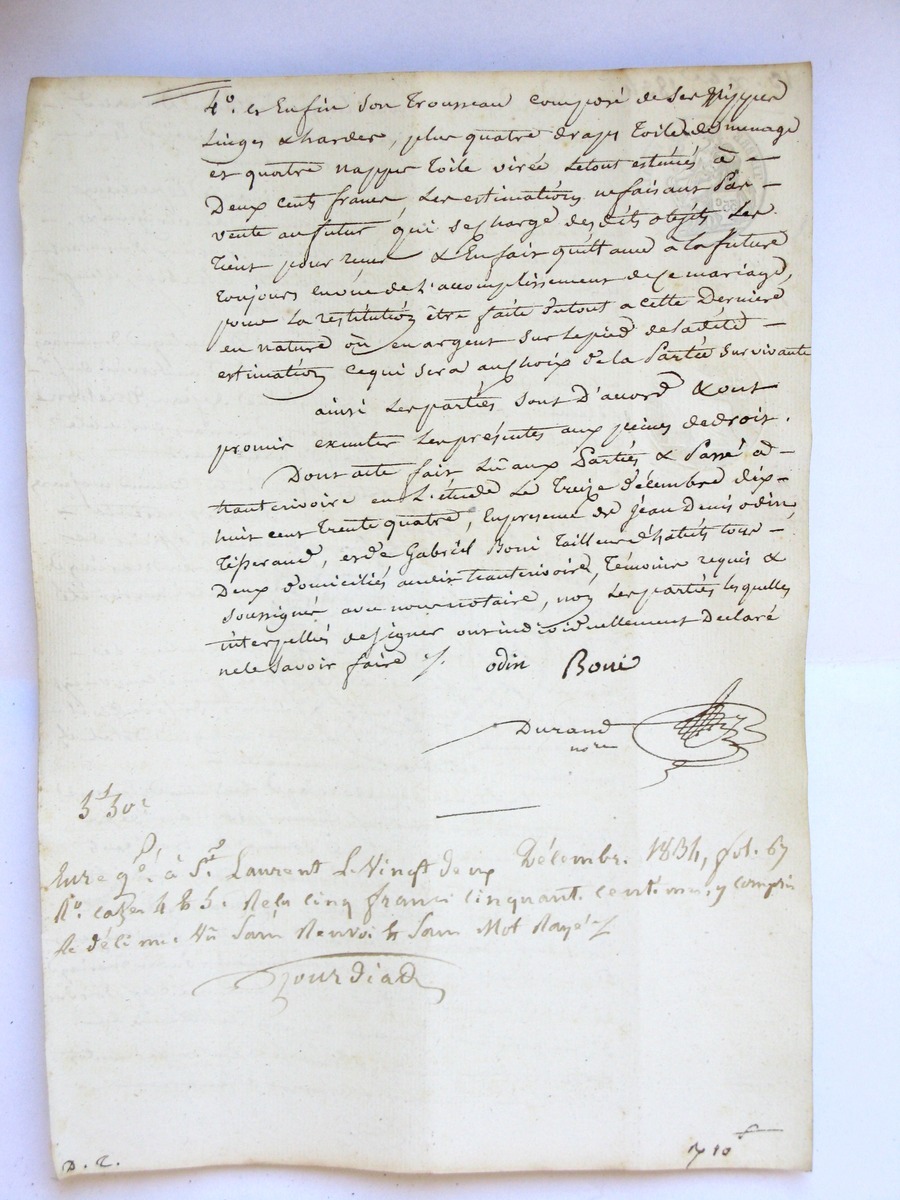 4°. et Enfin son Trousseau composé de ses Nippes
Linges & hardes, plus quatre draps toile de menage
et quatre nappes toile virée Le tout estimés à -
Deux cents francs Les estimations ne faisant Pas -
vente au futur qui se charge desdits objets Les
tient pour reçus & En fait quittance à la future
toujours en vüe de L'accomplissement de Ce mariage,
pour La restitution être faite du tout a cette Derniere
en nature où en argent sur le pied de ladite -
estimation ce qui sera au choix de la Partie Survivante
ainsi Les parties sont D'accord & ont
promis executer Les présentes aux peines de droit.
Dont acte fait Lû aux Parties & Passé à -
hauterivoire en L'étude Le Treize décembre dix-
huit cent Trente quatre, En presence de jean Denis odin,
Tisserand, et de Gabriel Boni Tailleur d'habits tous -
Deux domiciliés audit hauterivoire, Témoins requis &
soussignés avec nous notaire, non Les parties lesquelles
interpellées de signer ont individuellement Declaré
ne le savoir faire ./.
odin Boni
Durand
nore
Enregé. à St Laurent Le Vingt deux Décembre 1834, fol. 67
Ro. cazes 4 & 5. Reçu Cinq francs Cinquante centimes, y compris
le décime. Vu Sans Renvoi & Sans Mot Rayé
D. E.